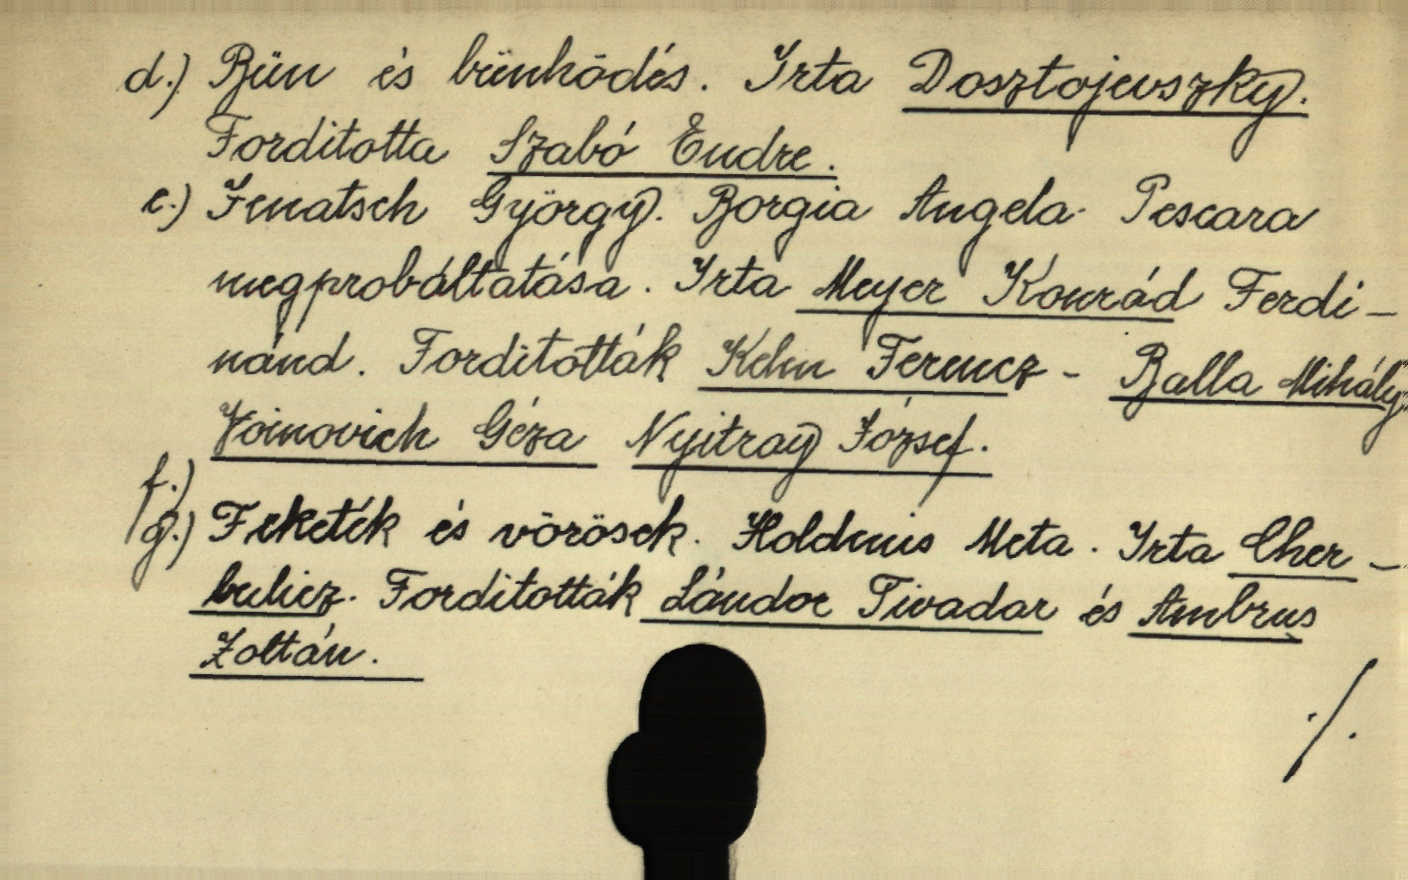 d.) Bün és bünhödés. Irta Dosztojevszky.
Forditotta Szabó Endre.
e.) Jenatsch György. Borgia Angela. Pescara
megprobáltatása. Irta Meyer Konrád Ferdi-
nánd. Forditották Kelen Ferencz - Balla Mihály
Voinovich Géza Nyitray József.
f.)
g.) Feketék és vörösek. Holdenis Meta. Irta Cher-
buliez. Forditották Sándor Tivadar és Ambrus
Zoltán.
./.